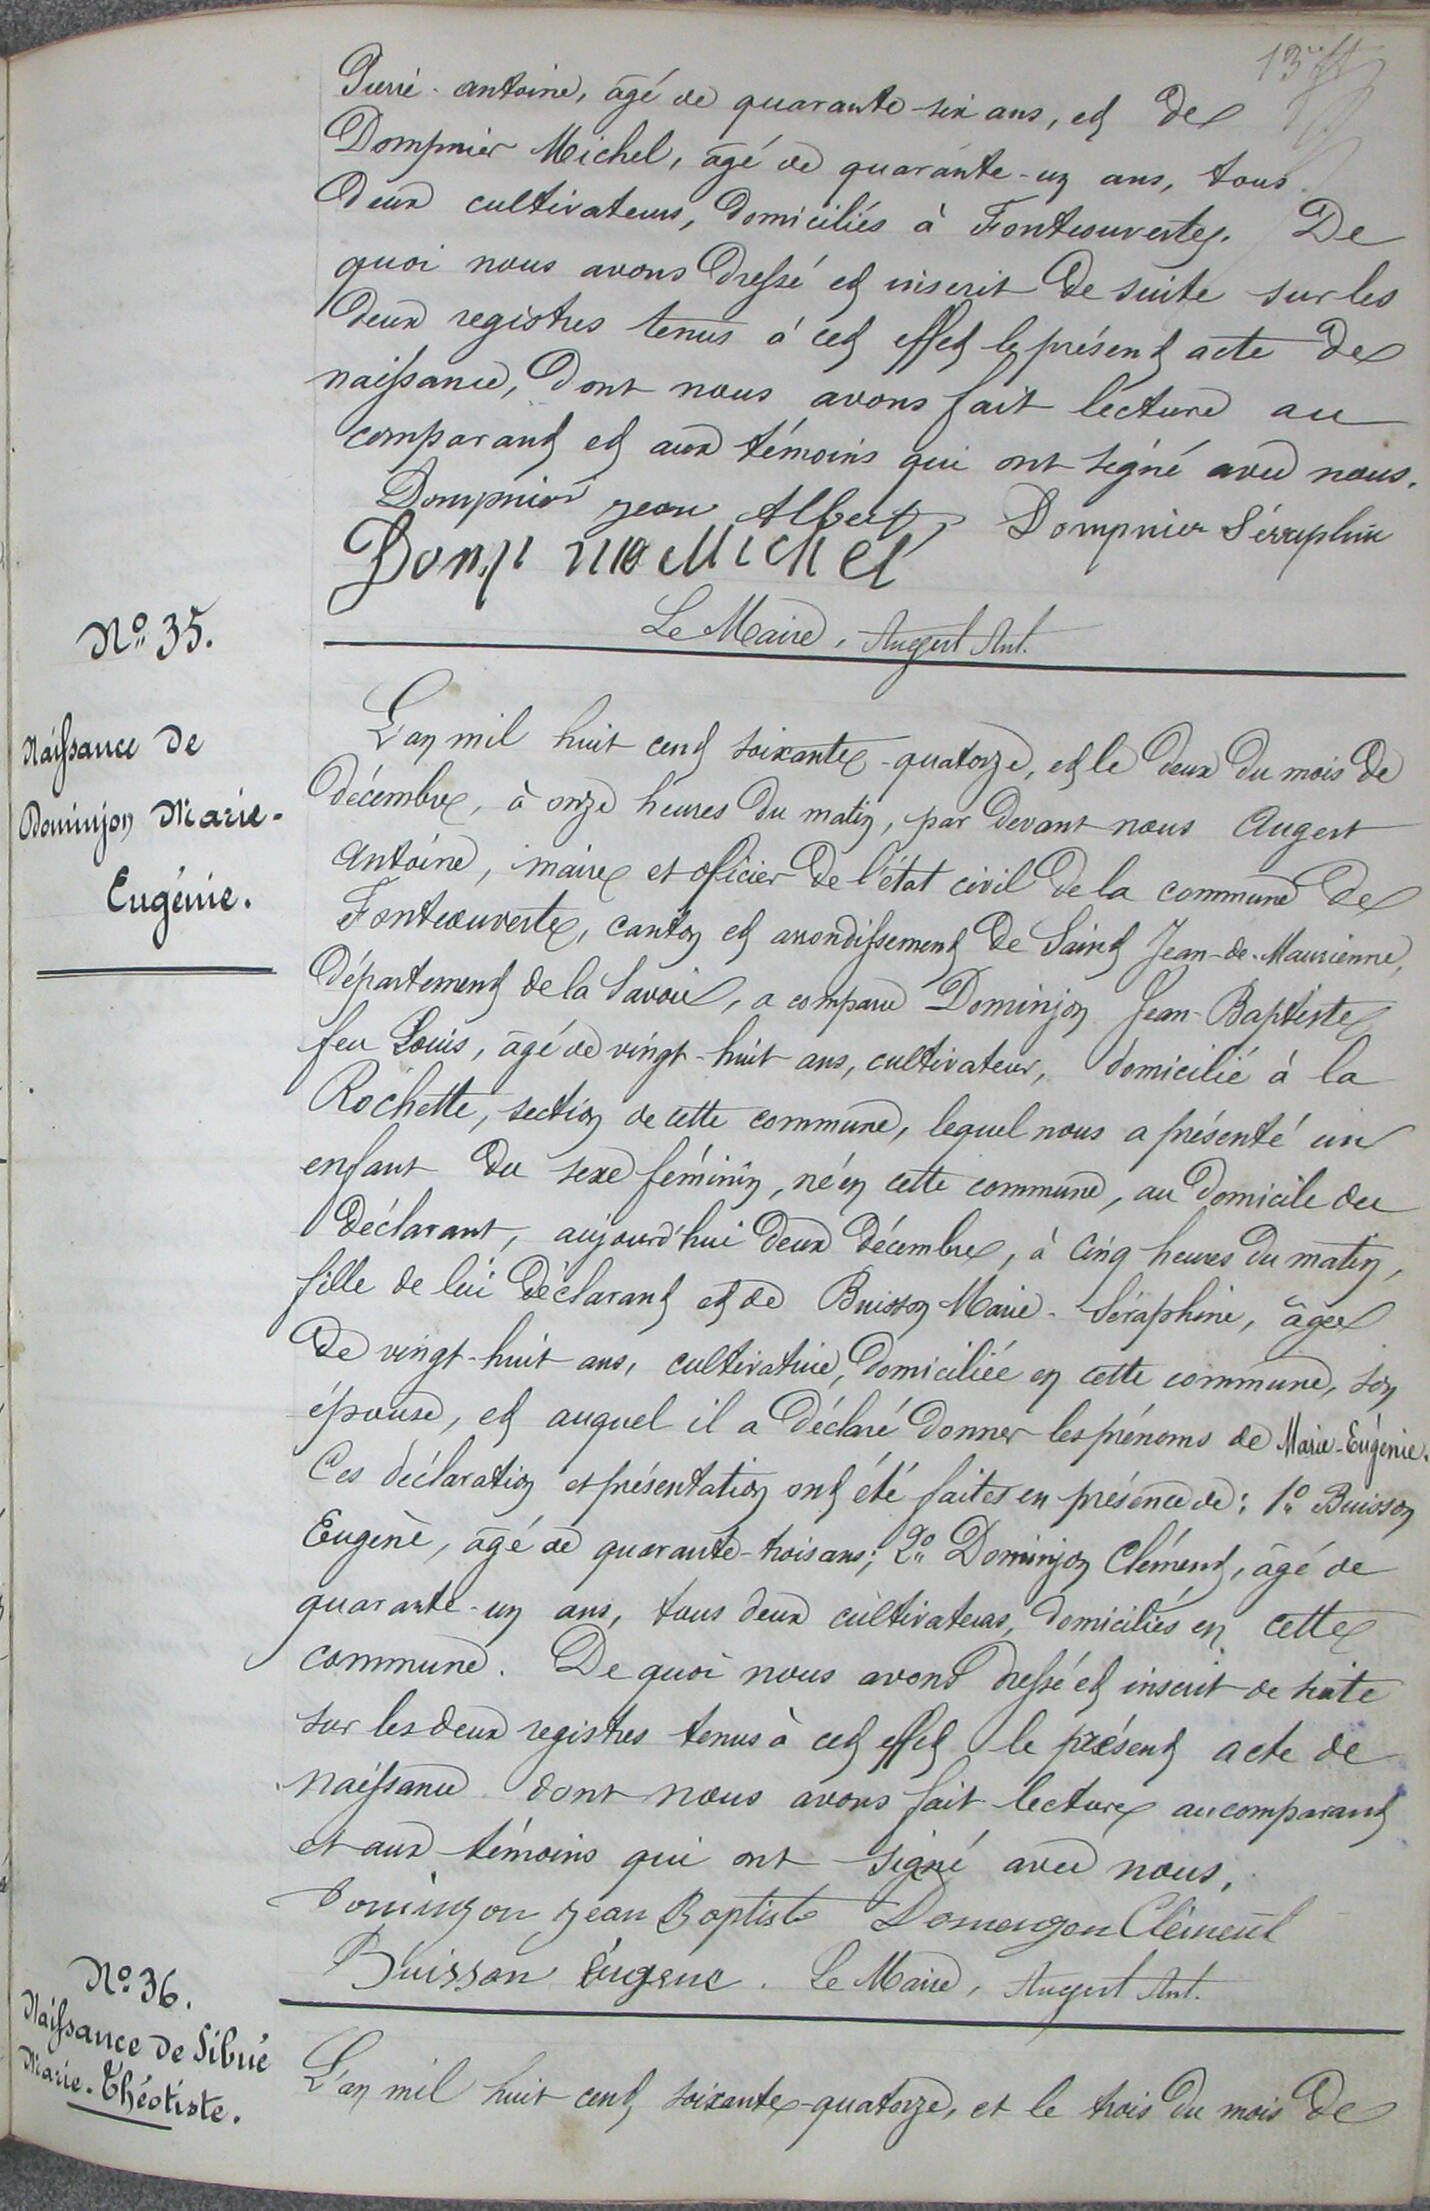 13
Pierre-antoine, âgé de quarante-six ans, et de
Dompnier Michel, âgé de quarante-un ans, tous
deux cultivateurs, domiciliés à Fontcouverte. De
quoi nous avons dressé et inscrit de suite sur les
deux registres tenus à cet effet le présent acte de
naissance, dont nous avons fait lecture au
comparant et aux témoins qui ont signé avec nous.
Dompnier jean Albert, Dompnier Séraphin
Michel
Le Maire, Augert Ant.
No 35.
Naissance de
Dominjon Marie-
Eugénie.
L'an mil huit cent soixante-quatorze, et le deux du mois de
décembre, à onze heures du matin, par devant nous Augert
Antoine, maire et officier de l'état civil de la commune de
Fontcouverte, canton et arrondissement de Saint Jean-de-Maurienne,
département de la Savoie, a comparu Dominjon Jean-Baptiste
feu Louis, âgé de vingt-huit ans, cultivateur, domicilié à la
Rochette, section de cette commune, lequel nous a présenté un
enfant du sexe féminin, né en cette commune, au domicile du
déclarant, aujourd'hui deux décembre, à cinq heures du matin,
fille de lui déclarant et de Buisson Marie-Séraphine, âgée
de vingt-huit ans, cultivatrice, domiciliée en cette commune, son
épouse, et auquel il a déclaré donner les prénoms de Marie-Eugénie.
Ces déclaration et présentation ont été faites en présence de : 1o Buisson
Eugène, âgé de quarante-trois ans ; 2o Dominjon Clément, âgé de
quarante-un ans, tous deux cultivateurs, domiciliés en cette
commune. De quoi nous avons dressé et inscrit de suite
sur les deux registres tenus à cet effet le présent acte de
naissance dont nous avons fait lecture au comparant
et aux témoins qui ont signé avec nous.
Dominjon jean Baptiste Domengon Clément
Buisson Eugene. Le Maire, Augert Ant.
No 36.
Naissance de Sibué
Marie-Théotiste.
L'an mil huit cent soixante-quatorze, et le trois du mois de